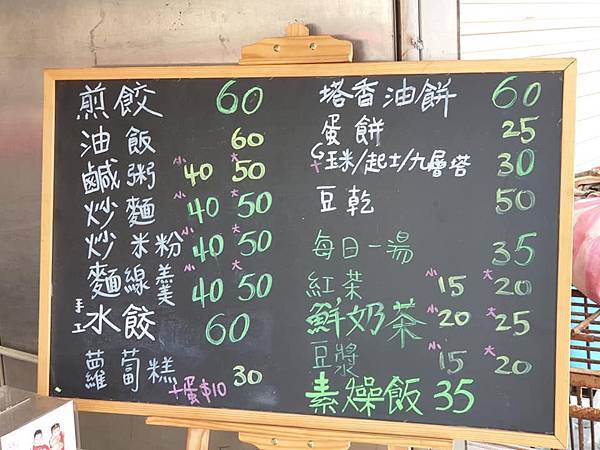 煎餃 60
油飯 60
鹹粥 小40 大50
炒麵 小40 大50
炒米粉 小40 大50
麵線羹 小40 大50
手工水餃 60
蘿蔔糕 30
+蛋$10
塔香油餅 60
蛋餅 25
+玉米/起士/九層塔 30
豆乾 50
每日一湯 35
紅茶 小15 大20
鮮奶茶 小20 大25
豆漿 小15 大20
素燥飯 35